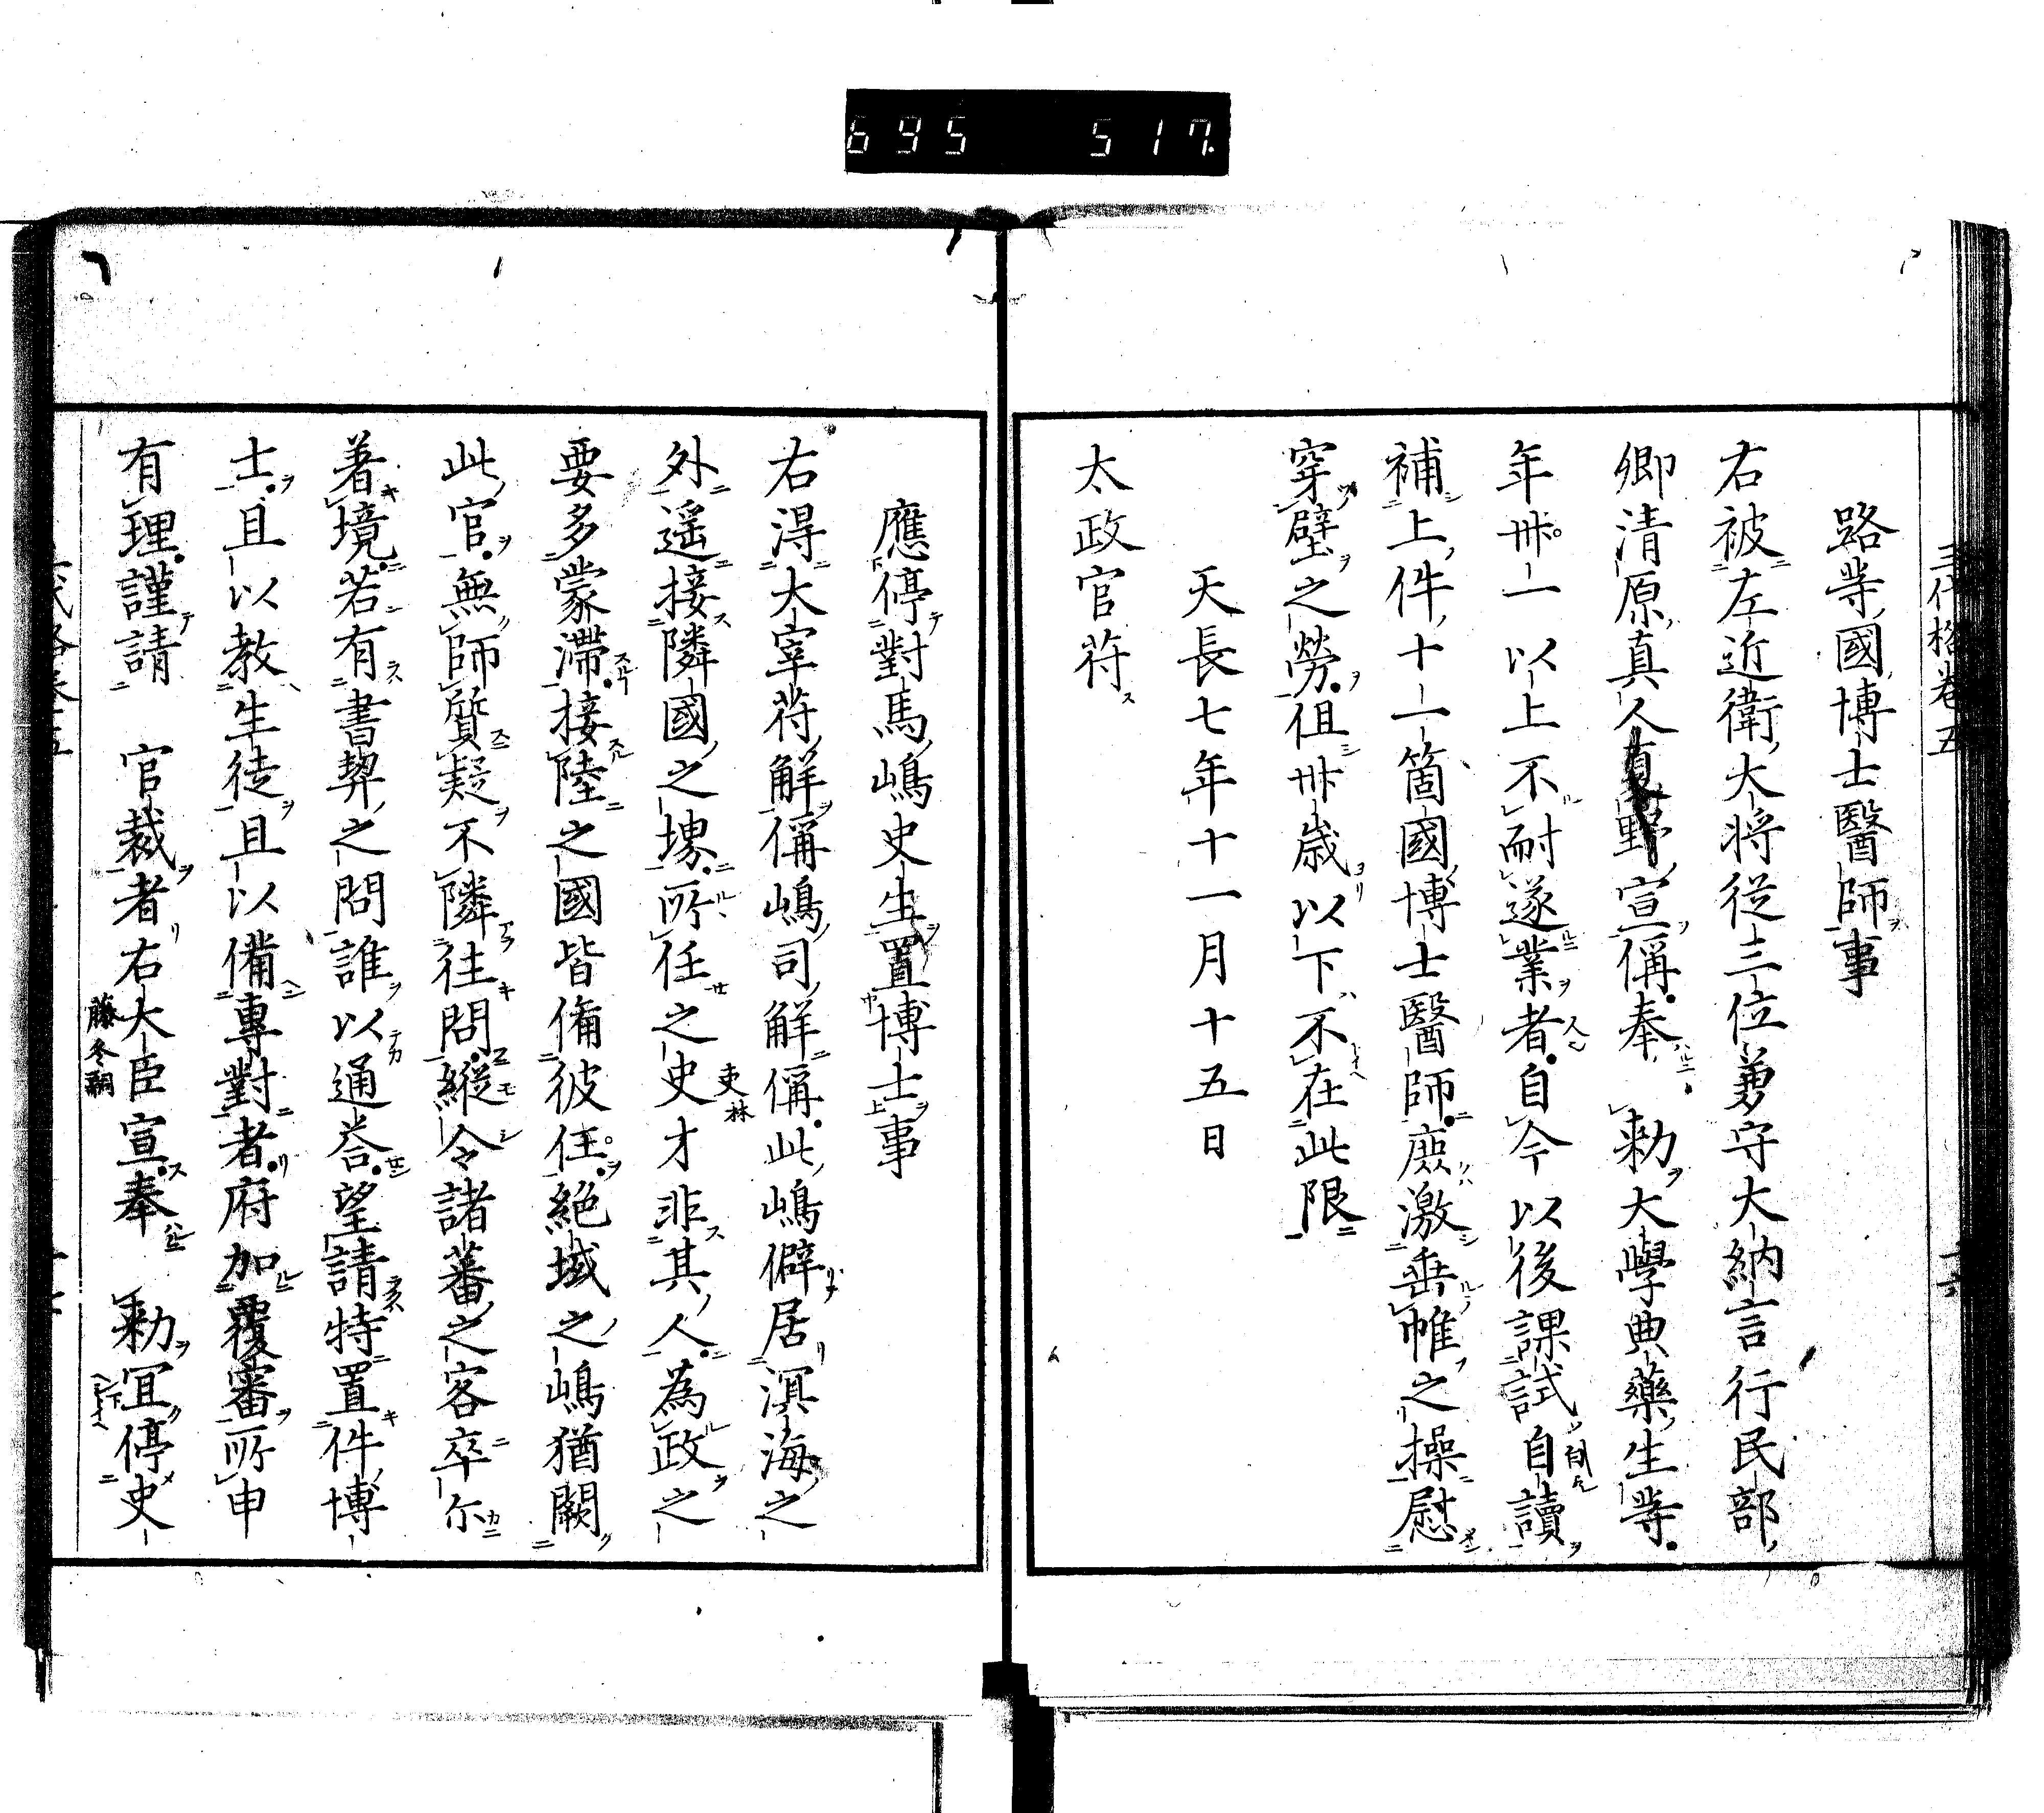 695 517
三代格卷五
路等國博士醫師事
右被左近衛大将従三位兼守大納言行民部
卿清原真人夏野宣偁奉 勅大學典藥生等
年卅一以上不耐遂業者自今以後課試自讀
補上件十一箇國博士醫師庶激垂帷之操慰
穿壁之勞但卅歳以下不在此限
天長七年十一月十五日
太政官符
應停對馬嶋史生置博士事
右得大宰府解偁嶋司解偁此嶋僻居溟海之
外遥接隣國之堺所任之史才非其人為政之
要多蒙滯接陸之國皆備彼任絶域之嶋猶闕
此官無師質疑不隣往問縱令諸蕃之客卒尓
著境若有書契之問誰以通荅望請特置件博
士且以教生徒且以備專對者府加覆審所申
有理謹請 官裁者右大臣宣奉 勅冝停史
藤冬嗣